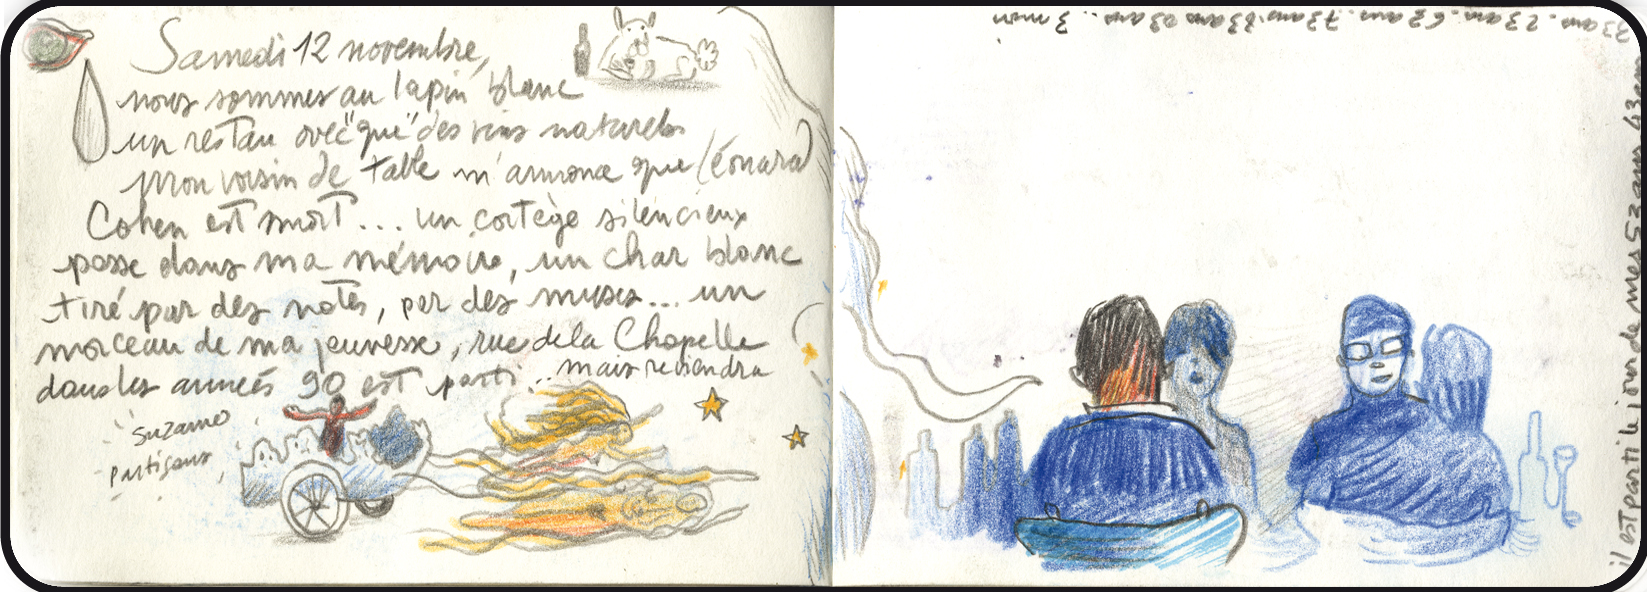 Samedi 12 novembre,
nous sommes au lapin blanc
un restau avec "que" des vins naturels
mon voisin de table m'annonce que Léonard
Cohen est mort... un cortège silencieux
passe dans ma mémoire, un char blanc
tiré par des notes, par des muses... un
morceau de ma jeunesse, rue de la Chapelle
dans les années 90 est parti... mais reviendra
Suzanne
partisans
il est parti le jour de mes 53 ans 43 ans
33 ans. 23 ans. 63 ans. 73 ans. 83 ans 93 ans... 3 mois